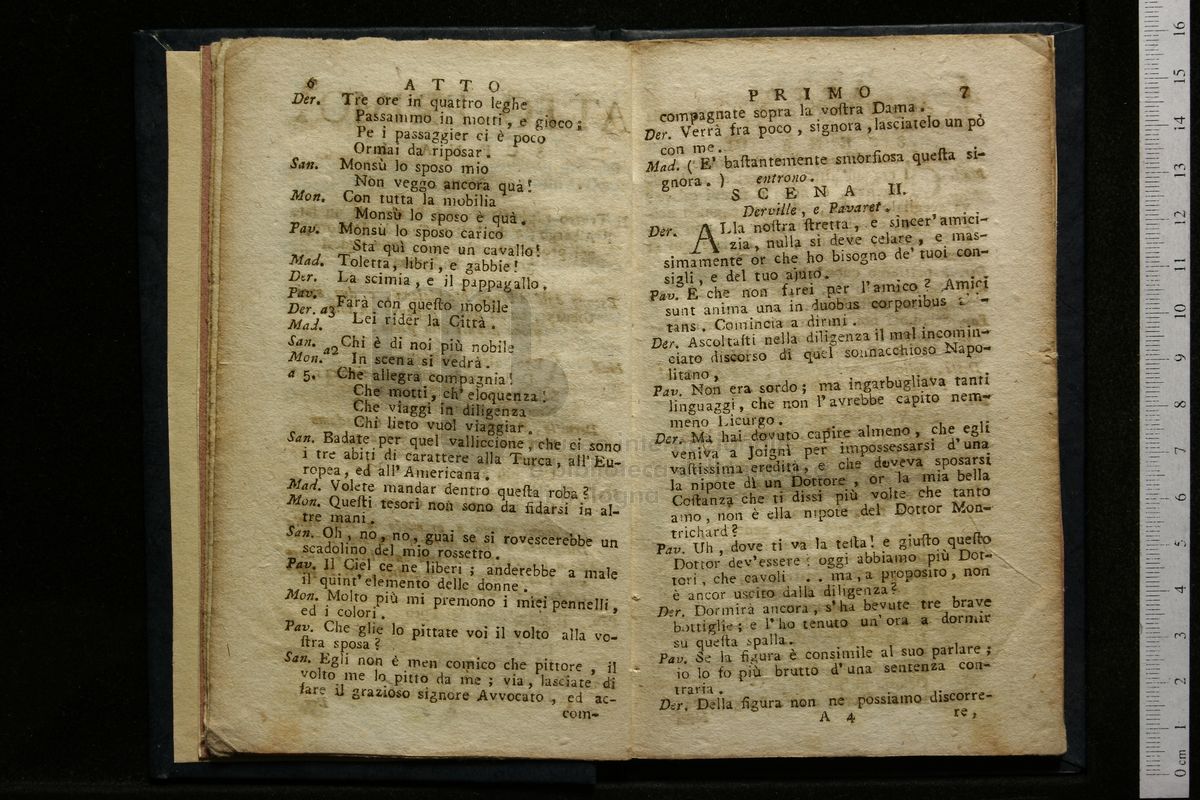 6 ATTO
Der. Tre ore in quattro leghe
Passammo in motti, e gioco;
Pe i passaggier ci è poco
Ormai da riposar.
San. Monsù lo sposo mio
Non veggo ancora quà!
Mon. Con tutta la mobilia
Monsù lo sposo è quà.
Pav. Monsù lo sposo carico
Sta quì come un cavallo!
Mad. Toletta, libri, e gabbie!
Der. La scimia, e il pappagallo.
Pav.
Der. a3 Farà con questo mobile
Mad. Lei rider la Città.
San. a2 Chi è di noi più nobile
Mon. In scena si vedrà.
a 5. Che allegra compagnia!
Che motti, ch'eloquenza!
Che viaggi in diligenza
Chi lieto vuol viaggiar.
San. Badate per quel valliccione, che ci sono
i tre abiti di carattere alla Turca, all'Eu-
ropea, ed all'Americana.
Mad. Volete mandar dentro questa roba?
Mon. Questi tesori non sono da fidarsi in al-
tre mani.
San. Oh, no, no, guai se si rovescerebbe un
scadolino del mio rossetto.
Pav. Il Ciel ce ne liberi; anderebbe a male
il quint'elemento delle donne.
Mon. Molto più mi premono i miei pennelli,
ed i colori.
Pav. Che glie lo pittate voi il volto alla vo-
stra sposa?
San. Egli non è men comico che pittore, il
volto me lo pitto da me; via, lasciate di
fare il grazioso signore Avvocato, ed ac-
com-
PRIMO 7
compagnate sopra la vostra Dama.
Der. Verrà fra poco, signora, lasciatelo un pò
con me.
Mad. (E' bastantemente smorfiosa questa si-
gnora.) entrono.
SCENA II.
Derville, e Pavaret.
Der. ALla nostra stretta, e sincer'amici-
zia, nulla si deve celare, e mas-
simamente or che ho bisogno de' tuoi con-
sigli, e del tuo ajuto.
Pav. E che non farei per l'amico? Amici
sunt anima una in duobus corporibus
tans. Comincia a dirmi.
Der. Ascoltasti nella diligenza il mal incomin-
ciato discorso di quel sonnacchioso Napo-
litano,
Pav. Non era sordo; ma ingarbugliava tanti
linguaggi, che non l'avrebbe capito nem-
meno Licurgo.
Der. Ma hai dovuto capire almeno, che egli
veniva a Joignì per impossessarsi d'una
vastissima eredità, e che doveva sposarsi
la nipote di un Dottore, or la mia bella
Costanza che ti dissi più volte che tanto
amo, non è ella nipote del Dottor Mon-
trichard?
Pav. Uh, dove ti va la testa! e giusto questo
Dottor dev'essere: oggi abbiamo più Dot-
tori, che cavoli .. ma, a proposito, non
è ancor uscito dalla diligenza?
Der. Dormirà ancora, s'ha bevute tre brave
bottiglie; e l'ho tenuto un'ora a dormir
su questa spalla.
Pav. Se la figura è consimile al suo parlare;
io lo fo più brutto d'una sentenza con-
traria.
Der. Della figura non ne possiamo discorre-
A 4 re,
0 cm 1 2 3 4 5 6 7 8 9 10 11 12 13 14 15 16